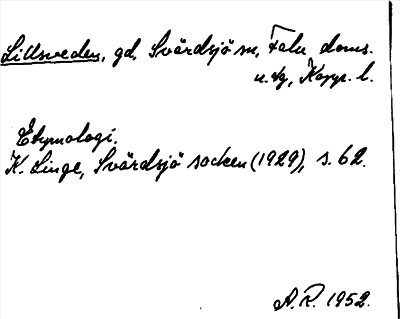 Lillsveden, gd, Svärdsjö sn, Falu doms.
u. tg, Kopp. l.
Etymologi.
K. Linge, Svärdsjö socken (1929), s. 62.
A. R. 1952.